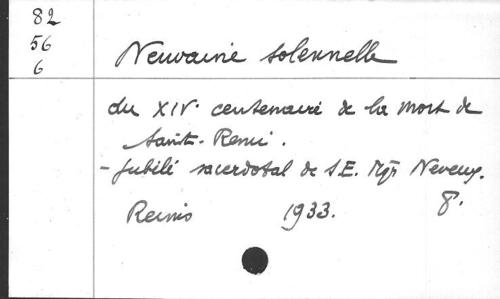 82
56
6
Neuvaine solennelle
du XIVe centenaire de la mort de
Saint-Remi.
- Jubilé sacerdotal de S.E. Mgr Neveux.
Reims 1933. 8°.